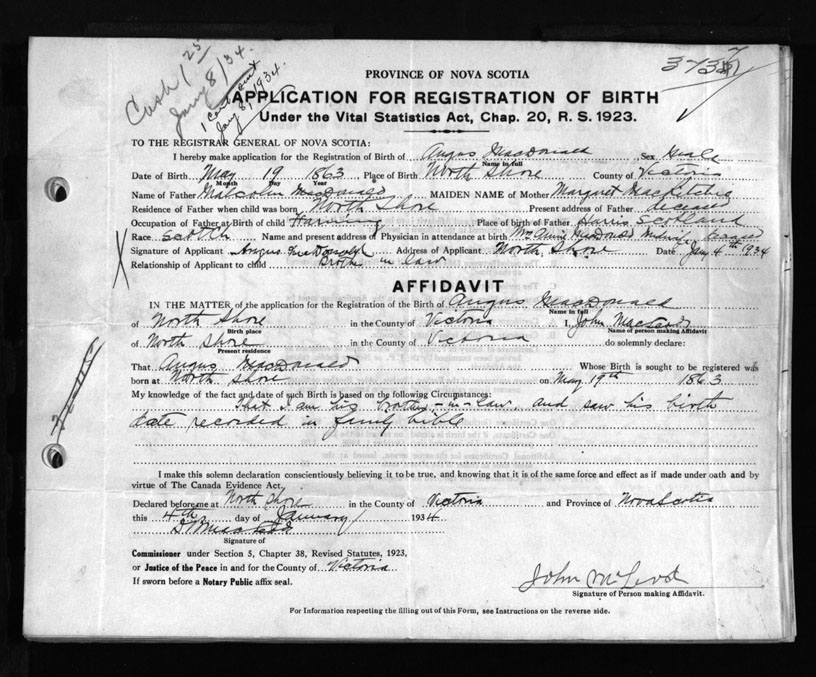 Cash 1 25
Jany 8/34.
Jany 8, 1934.
PROVINCE OF NOVA SCOTIA
APPLICATION FOR REGISTRATION OF BIRTH
Under the Vital Statistics Act, Chap. 20, R. S. 1923.
TO THE REGISTRAR GENERAL OF NOVA SCOTIA:
I hereby make application for the Registration of Birth of Angus MacDonald Sex Male
Name in full
Date of Birth May 19 1863 Place of Birth North Shore County of Victoria
Month Day Year
Name of Father Malcolm MacDonald MAIDEN NAME of Mother Margret
Residence of Father when child was born North Shore Present address of Father
Occupation of Father at Birth of child Farming Place of birth of Father Harris Scotland
Race Scotch Name and present address of Physician in attendance at birth Mrs MacDonald Midwife
Signature of Applicant Angus MacDonald Address of Applicant North Shore Date Jany 4th 1934
Relationship of Applicant to child Brother in law
AFFIDAVIT
IN THE MATTER of the application for the Registration of the Birth of Angus MacDonald
Name in full
of North Shore in the County of Victoria I, John MacLeod
Birth place Name of person making Affidavit
of North Shore in the County of Victoria do solemnly declare:
Present residence
That Angus MacDonald Whose Birth is sought to be registered was
born at North Shore on May 19th 1863
My knowledge of the fact and date of such Birth is based on the following Circumstances:
That I am his brother-in-law, and saw his birth
date recorded in family bible
I make this solemn declaration conscientiously believing it to be true, and knowing that it is of the same force and effect as if made under oath and by
virtue of The Canada Evidence Act.
Declared before me at North Shore in the County of Victoria and Province of Nova Scotia
this 4th day of January 1934
Signature of
Commissioner under Section 5, Chapter 38, Revised Statutes, 1923,
or Justice of the Peace in and for the County of Victoria
If sworn before a Notary Public affix seal.
John McLeod
Signature of Person making Affidavit.
For Information respecting the filling out of this Form, see Instructions on the reverse side.